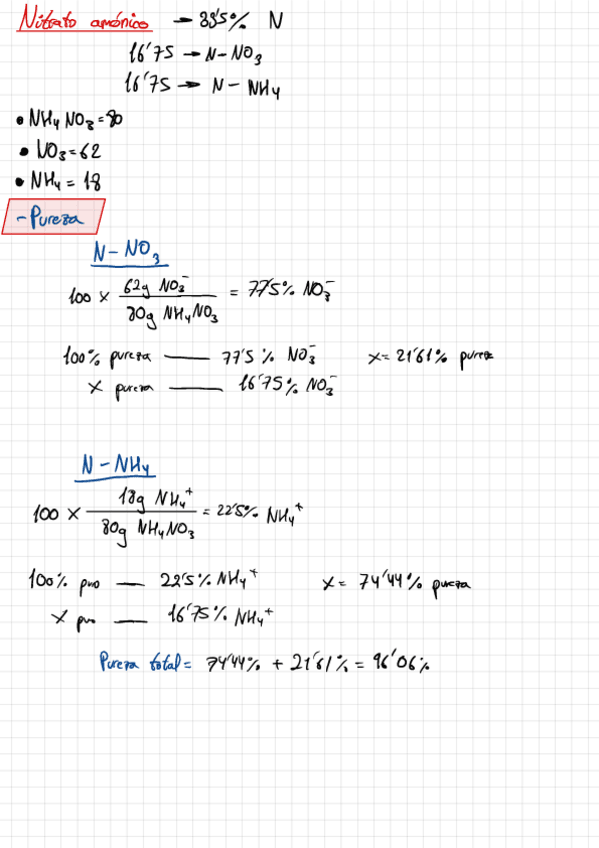 Nitrato amónico → 33'5% N
16'75 → N-NO3
16'75 → N-NH4
• NH4NO3=80
• NO3=62
• NH4=18
-Pureza
N-NO3
100 × 62g NO3- / 80g NH4NO3 = 77'5% NO3-
100% pureza —— 77'5% NO3- x=21'61% pureza
x pureza —— 16'75% NO3-
N-NH4
100 × 18g NH4+ / 80g NH4NO3 = 22'5% NH4+
100% puro — 22'5% NH4+ x= 74'44% pureza
x puro — 16'75% NH4+
Pureza total= 74'44% + 21'61% = 96'06%